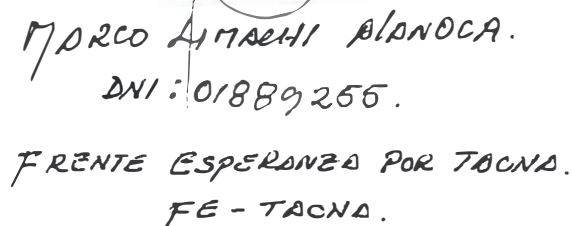 MARCO LIMACHI ALANOCA.
DNI: 01889255.
FRENTE ESPERANZA POR TACNA.
FE - TACNA.